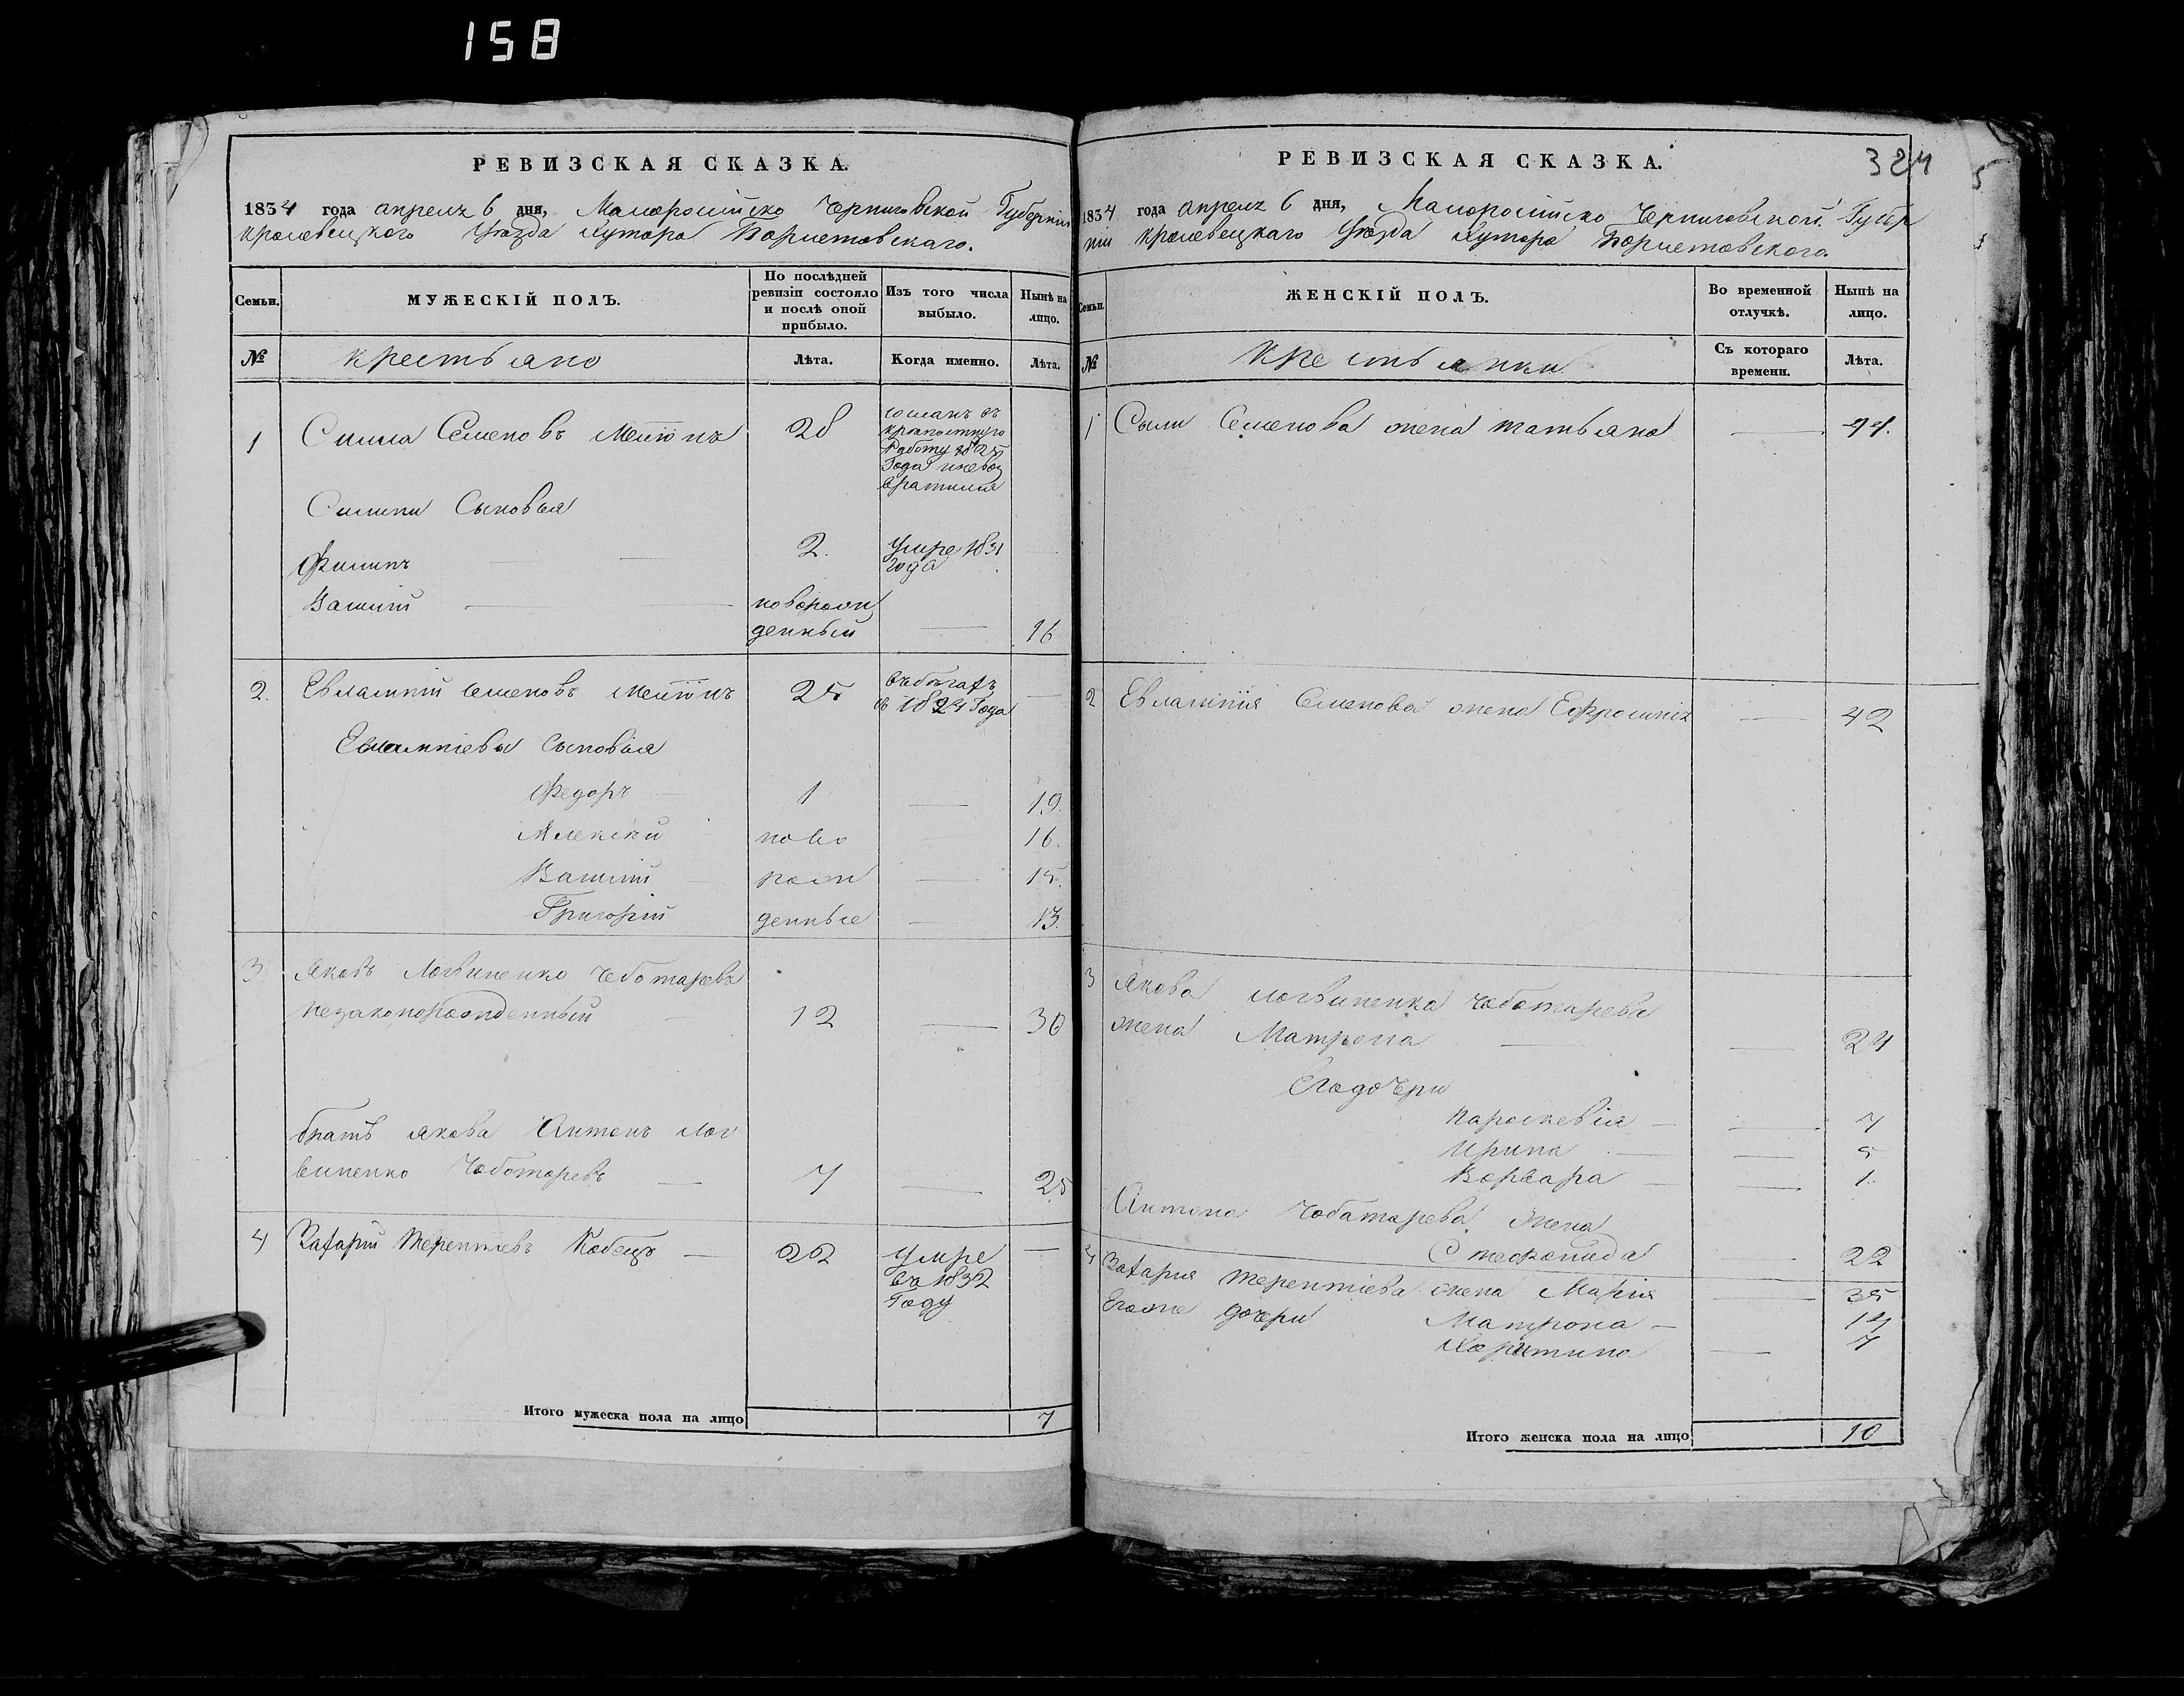 158
РЕВИЗСКАЯ СКАЗКА.
1834 года апреля 6 дня, Малоросійско Черниговской Губерніи
Кролевецкого Уезда Хутора
№ Семьи.
МУЖЕСКІЙ ПОЛЪ.
По послѣдней ревизіи состояло и послѣ оной прибыло.
Изъ того числа выбыло.
Нынѣ на лицо.
крестьяне
Лѣта.
Когда именно.
Лѣта.
1 Семеновъ 28
работу
Года
Сыновья
Филипъ 2. Умре 1831 года
Василій новорож
денный 16
2. Евлампій Семеновъ 25 въ бѣгахъ
съ 1824 Года
Евлампіевы сыновья
Федоръ 1 19.
Алексѣй ново 16.
Василій рож 15.
Григорій денные 13.
3 Яковъ Логвиненко Чеботаревъ
незаконорожденный 12 30
братъ якова Антонъ Лог
виненко Чоботаревъ 7 25
4 Захарій Терентіевъ Кобецъ 22 Умре
въ 1832
Году
Итого мужеска пола на лицо 7
324
РЕВИЗСКАЯ СКАЗКА.
1834 года апреля 6 дня, Малоросійско Черниговской Губер
ніи Кролевецкаго Уезда Хутора
Семьи.
ЖЕНСКІЙ ПОЛЪ.
Во временной отлучкѣ.
Нынѣ на лицо.
№
Крестьянки
Съ котораго времени.
Лѣта.
1 Семенова жена татьяна 44.
2 Евлампія Семенова жена Ефросинія 42
3 Якова логвиненка чоботарева
жена Матрона 24
Его дочери
Параскевія 7
Ирина 5
Варвара 1.
Антона Чоботарева жена
Стефанида 22
4 Захарія Терентіева жена Марія 35
Егоже дочери Матрона 14
Харитина 7
Итого женска пола на лицо 10